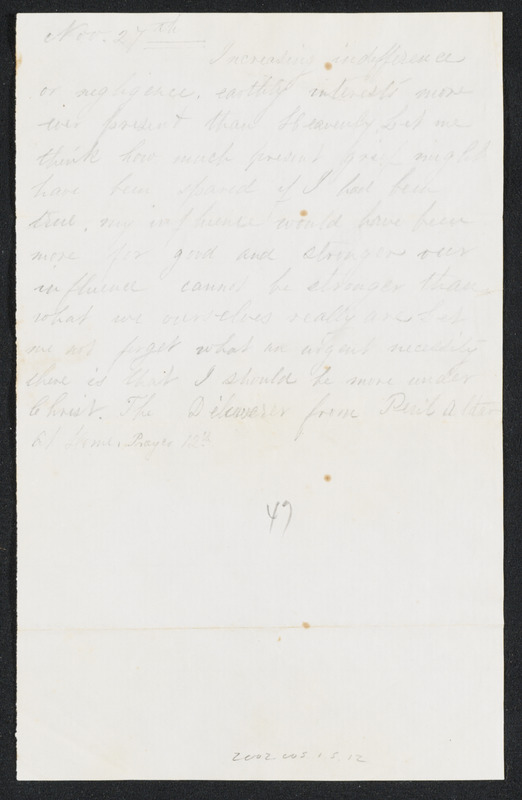 Nov. 27th
Increasing indifference
or negligence. earthly interests more
ever present than Heavenly Let me
think how much present grief might
have been spared if I had been
true. my influence would have been
more for good and stronger our
influence cannot be stronger than
what we ourselves really are Let
me not forget what an urgent necessity
there is that I should be more under
Christ. The Deliverer from Peril
at Prayer 12
47
2002 005 1.5.12